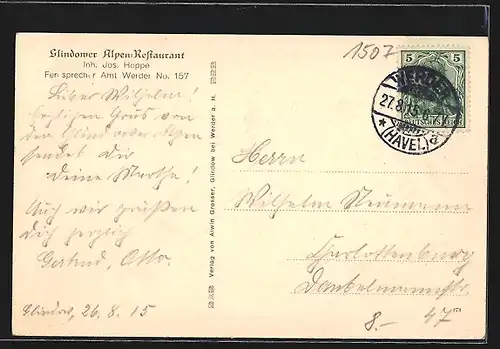 Glindower Alpen-Restaurant
Inh. Jos. Hoppe
Fernsprecher Amt Werder No. 157
Lieber Wilhelm!
Herzlichen Gruss von
den Glindower Alpen
sendet Dir
Deine Martha!
Auch wir grüßen
Dich herzlich
Gertrud, Otto.
Glindow, 26.8.15
Verlag von Alwin Grosser, Glindow bei Werder a. H.
1507
5 5
DEUTSCHES REICH
WERDER
27.8.15
* (HAVEL) a
Herrn
Wilhelm Neumann
Charlottenburg
Danckelmannstr.
47
8.-